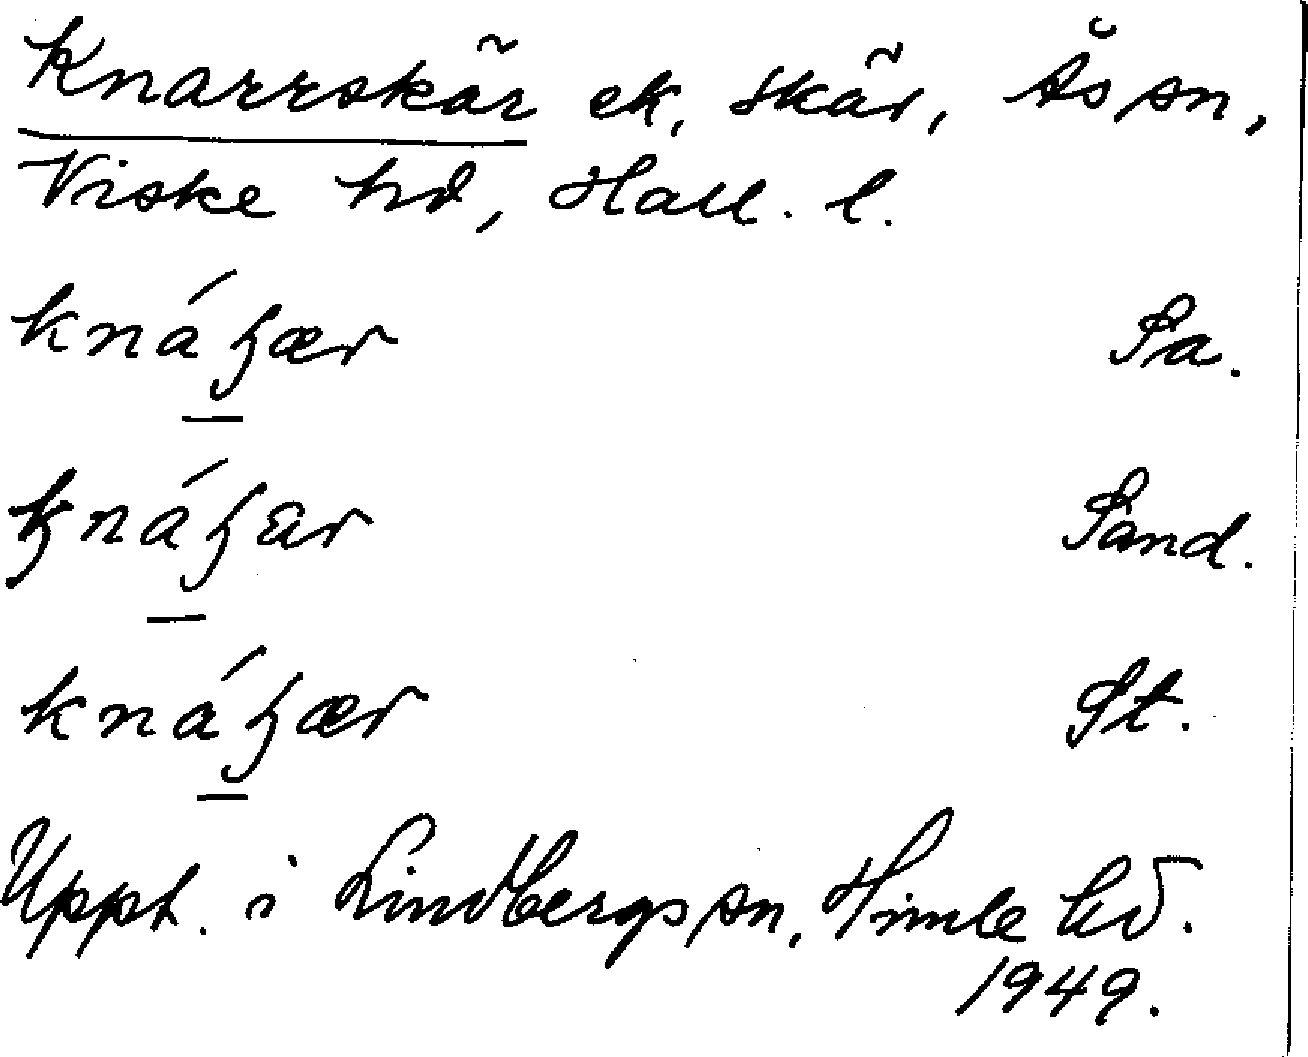 Knarrskär ek, skär, Ås sn,
Viske hd, Hall. l.
knáʒær Sa.
knáʒar Sand.
knáʒær St.
Uppt. i Lindbergs sn, Himle hd.
1949.